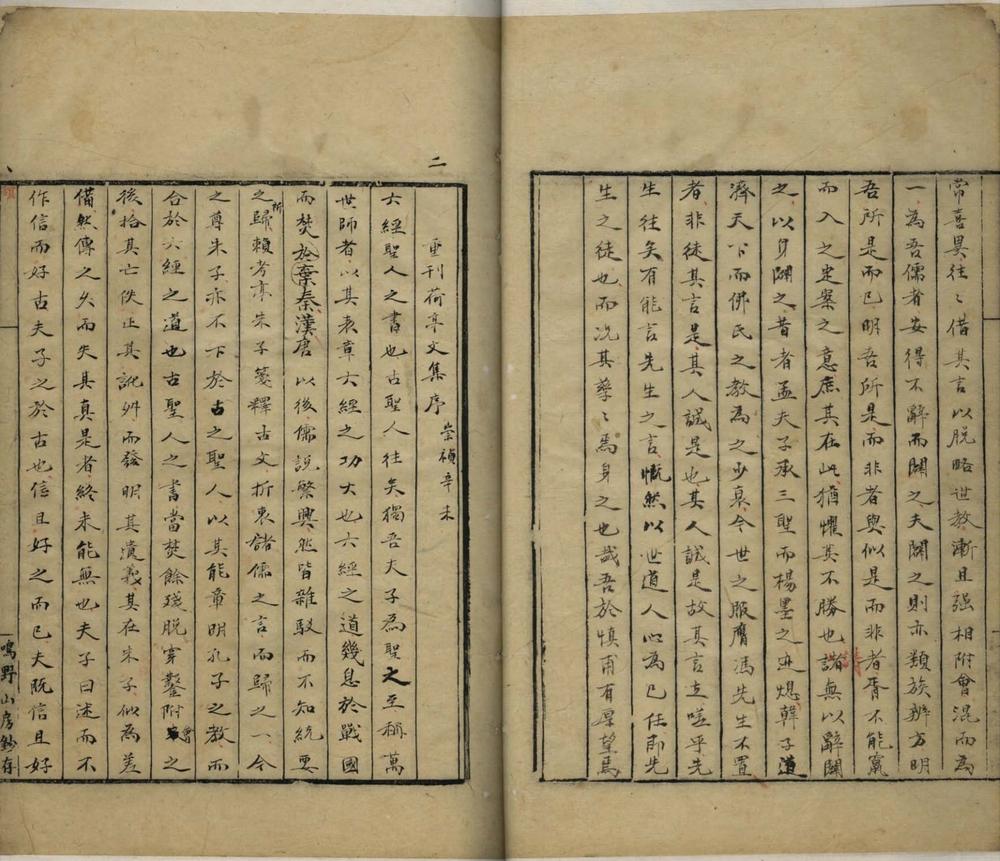 常喜異往〻借其言以脱略世教漸且强相附會混而為
一為吾儒者安得不辭而闢之夫闢之則亦類族辨方明
吾所是而已明吾所是而非者與似是而非者胥不能竄
而入之定案之意庶其在此猶懼其不勝也諸無以辭闢
之以身闢之昔者孟夫子承三聖而楊墨之迹熄韓子道
濟天下而佛氏之教為之少衰今世之服膺馮先生不置
者非徒其言是其人誠是也其人誠是故其言立嗟乎先
生往矣有能言先生之言慨然以世道人心為已任即先
生之徒也而况其孳〻焉身之也哉吾於慎甫有厚望焉
二
重刊荷亭文集序 崇禎辛未
六經聖人之書也古聖人往矣獨吾夫子為聖之至稱萬
世師者以其表章六經之功大也六經之道幾息於戰國
而焚於秦漢唐以後儒説繁興然皆雜駁而不知統要
之所歸賴考亭朱子箋釋古文折衷諸儒之言而歸之一今
之尊朱子亦不下於古之聖人以其能章明孔子之教而
合於六經之道也古聖人之書當焚餘殘脱穿鑿附會之
後拾其亡佚正其訛舛而發明其遺義其在朱子似為差
備然傳之久而失其真是者終未能無也夫子曰述而不
作信而好古夫子之於古也信且好之而已夫既信且好
鳴野山房鈔存